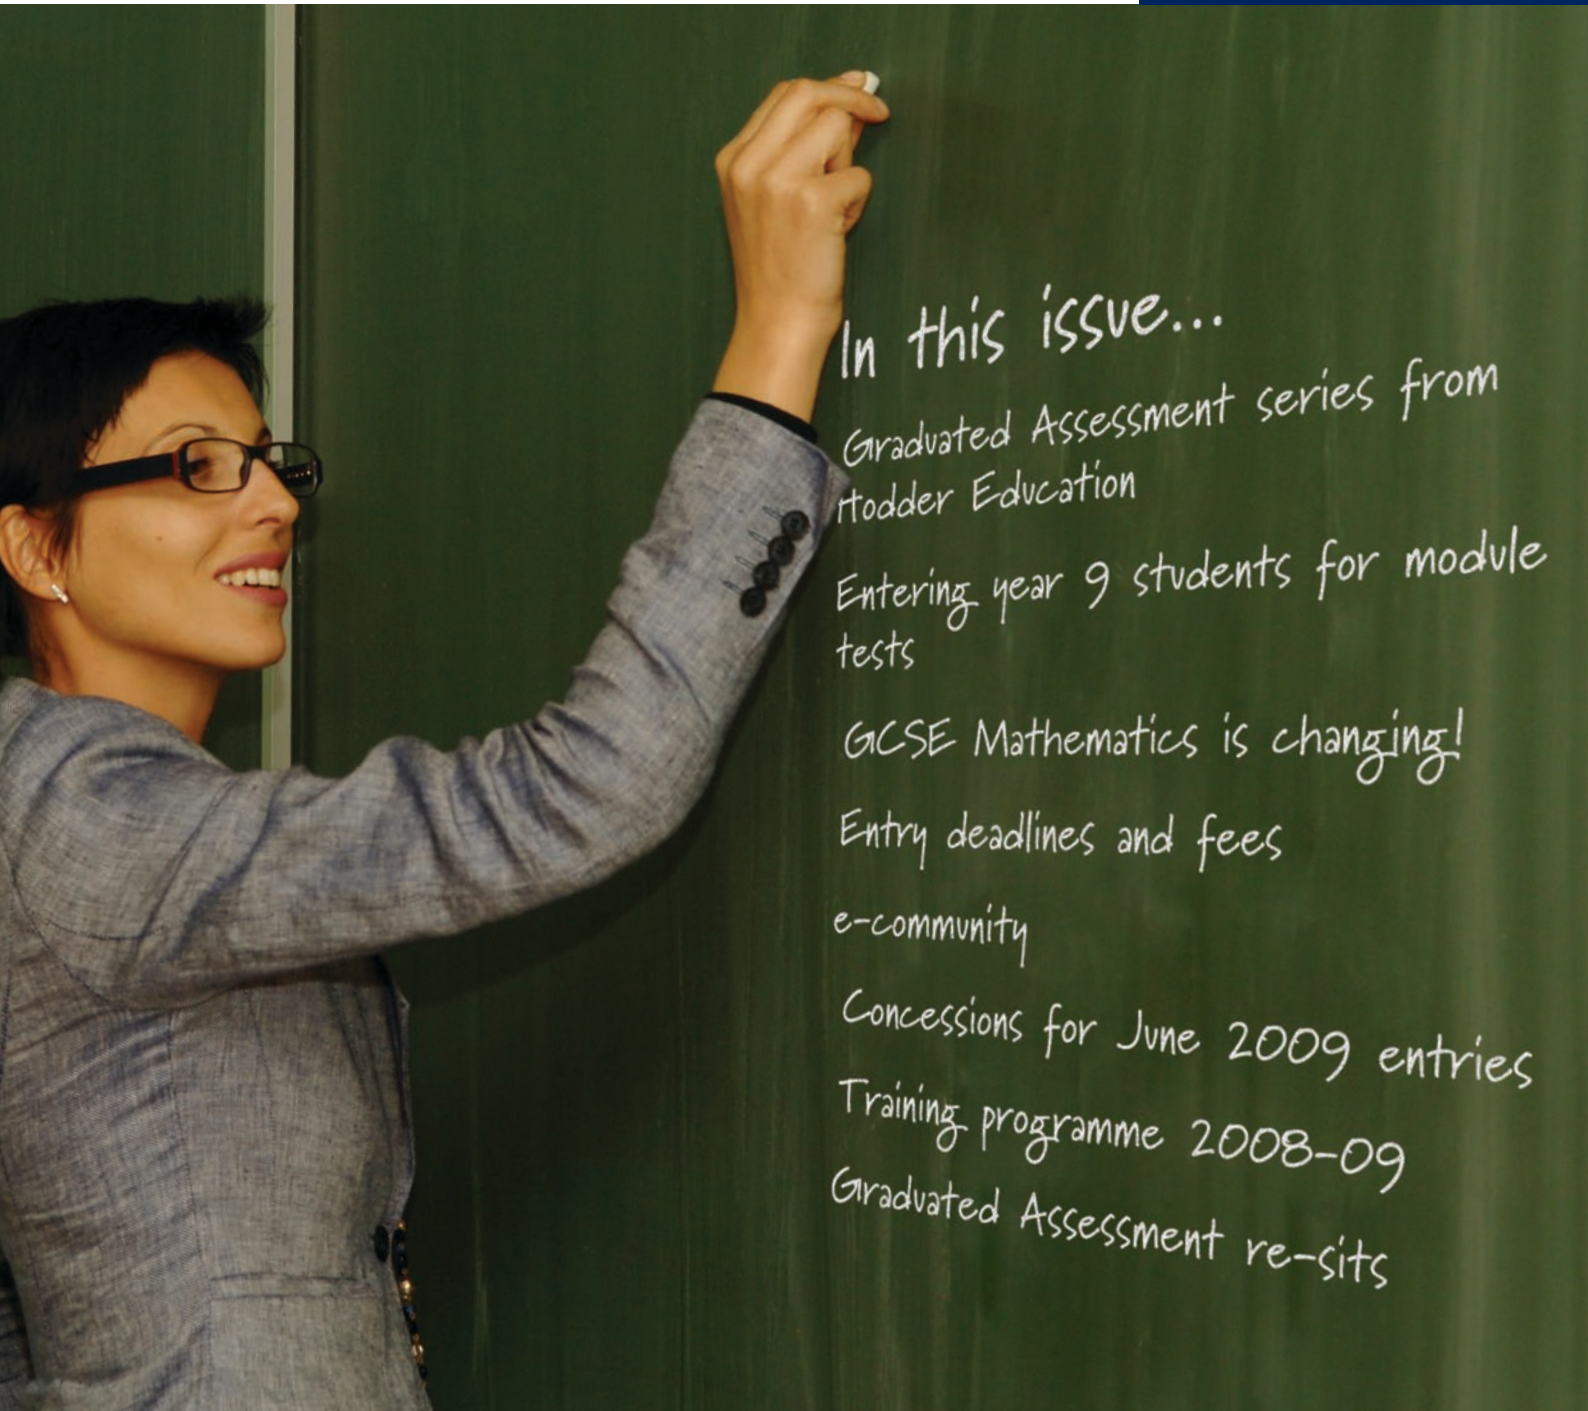 In this issue...
Graduated Assessment series from
Hodder Education
Entering year 9 students for module
tests
GCSE Mathematics is changing!
Entry deadlines and fees
e-community
Concessions for June 2009 entries
Training programme 2008-09
Graduated Assessment re-sits